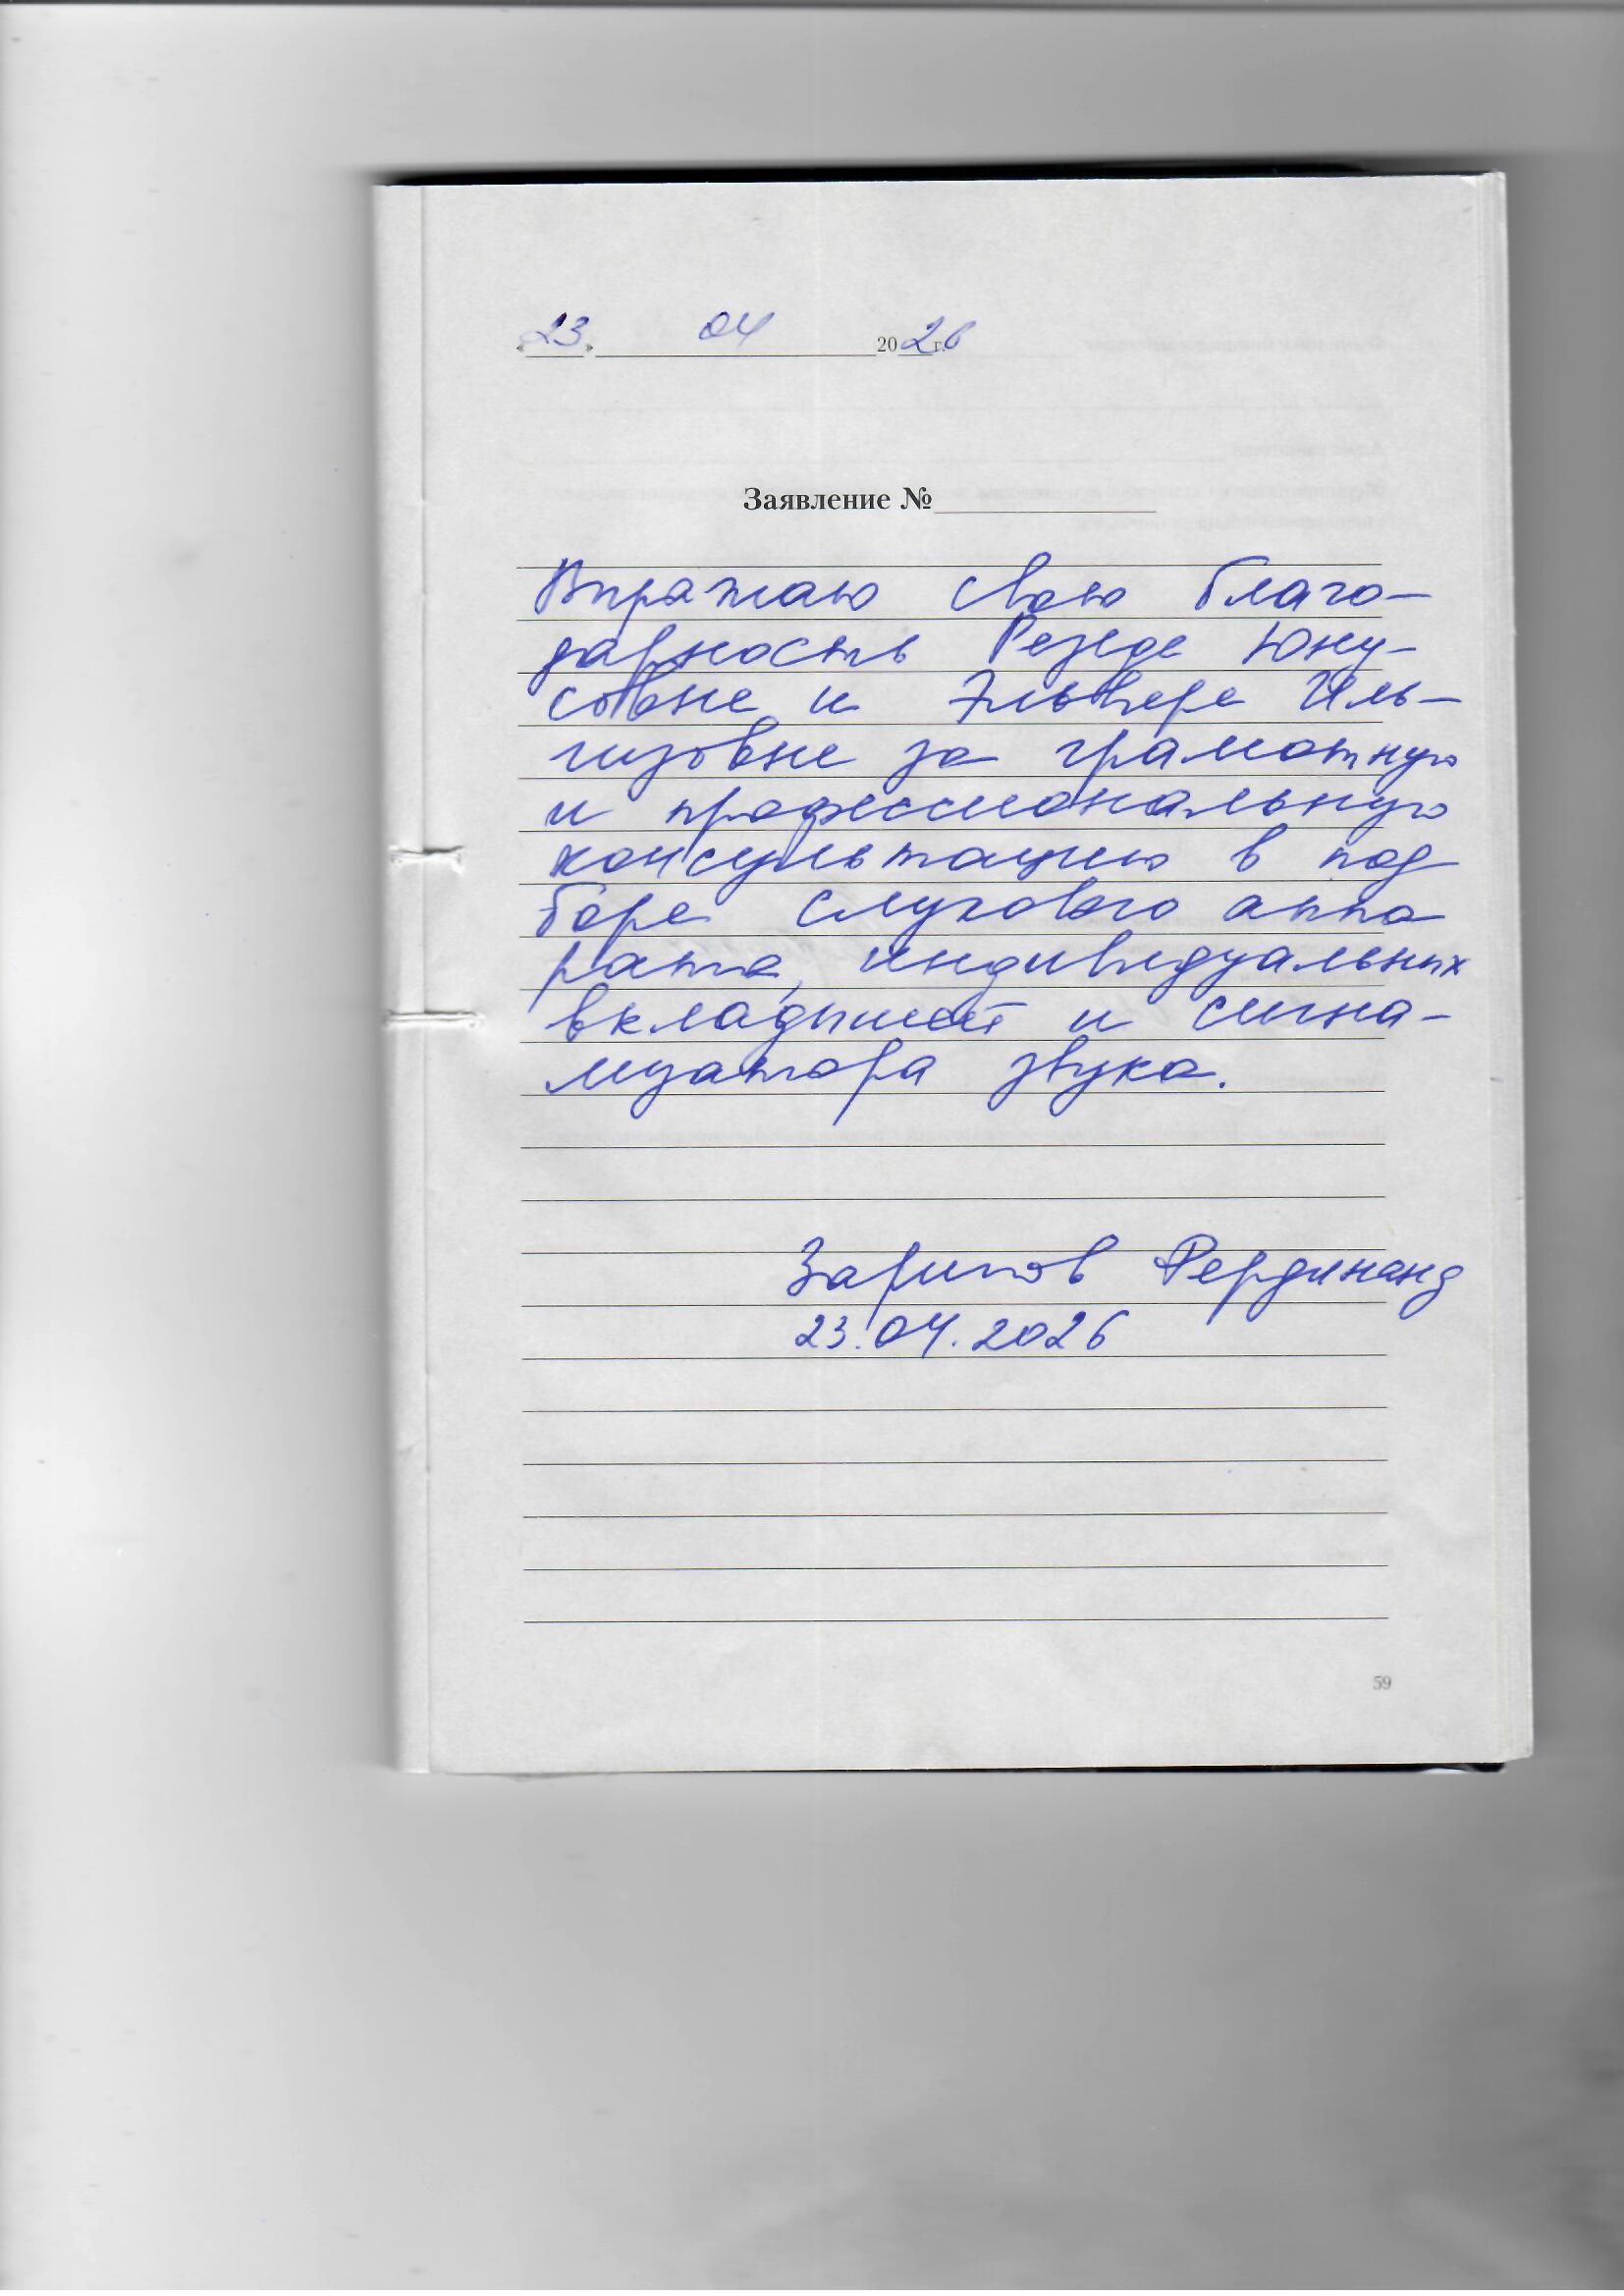 «23» 04 2026 г.
Заявление №
Выражаю свою благо-
дарность Резеде Юну-
совне и Эльвере Иль-
гизовне за грамотную
и профессиональную
консультацию в под
боре слухового аппа
рата, индивидуальных
вкладышей и сигна-
лизатора звука.
Зарипов Фердинанд
23.04.2026
59